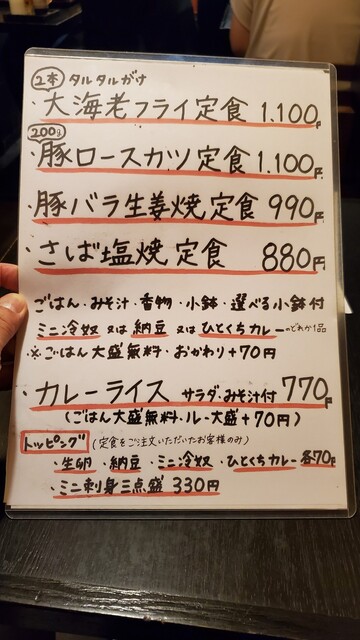 2本 タルタルがけ
・大海老フライ定食 1.100円
200g
・豚ロースカツ定食 1.100円
・豚バラ生姜焼定食 990円
・さば塩焼定食 880円
ごはん・みそ汁・香物・小鉢・選べる小鉢付
ミニ冷奴 又は 納豆 又は ひとくちカレーのどれか1品
※ごはん大盛無料・おかわり+70円
・カレーライス サラダ・みそ汁付 770円
(ごはん大盛無料・ルー大盛+70円)
トッピング (定食をご注文いただいたお客様のみ)
・生卵 ・納豆 ・ミニ冷奴 ・ひとくちカレー各70円
・ミニ刺身三点盛 330円